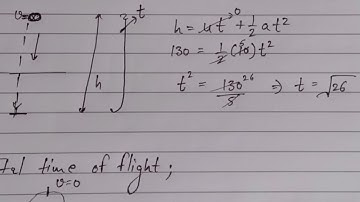 v=0
t
h
h = ut⁰ + 1/2 at²
130 = 1/2 (10)⁵ t²
t² = 130²⁶/5 ⇒ t = √26
time of flight;
v=0